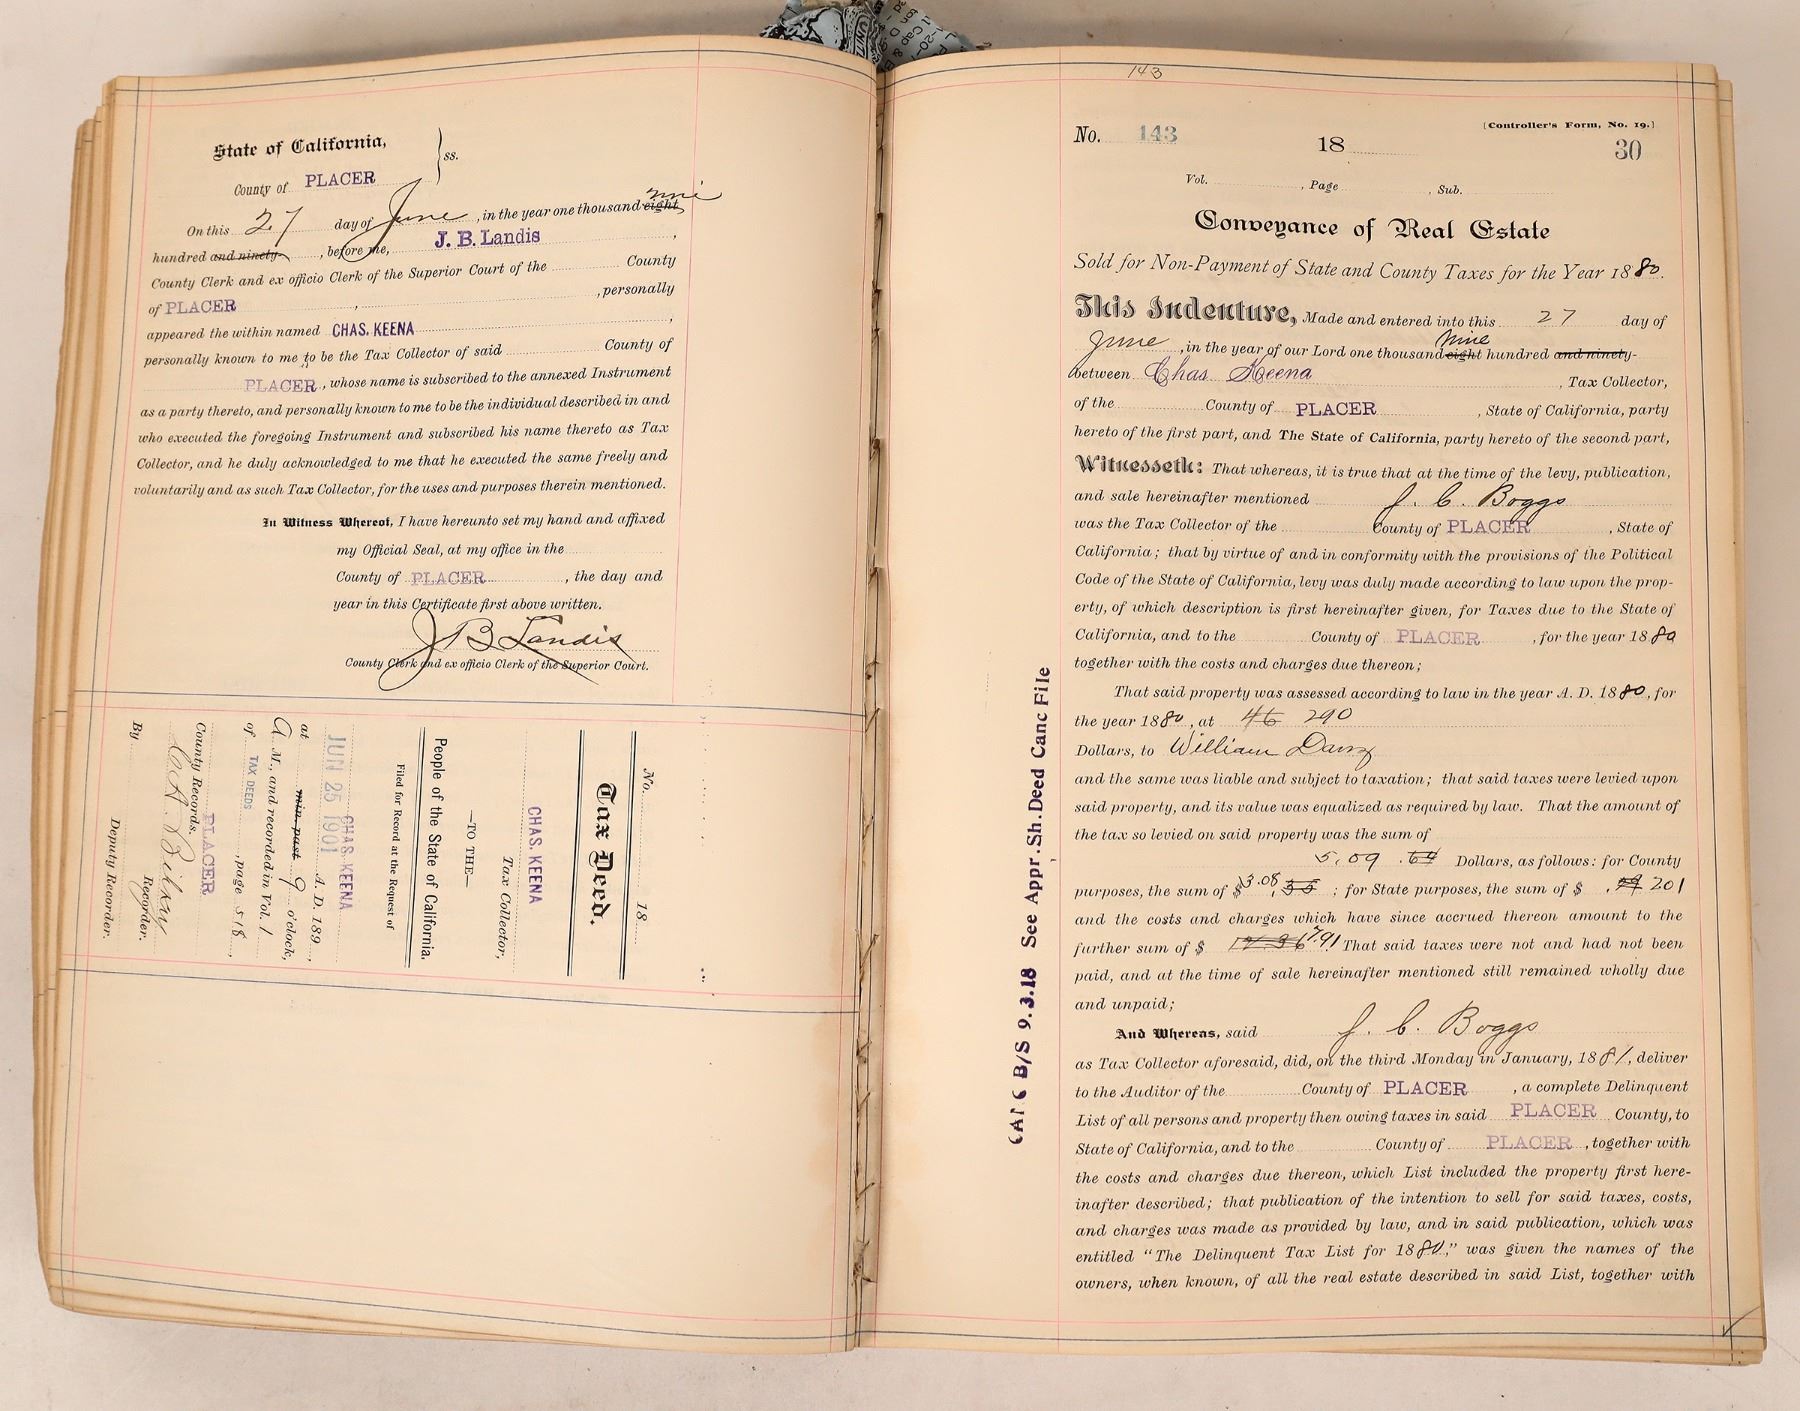 State of California,
ss.
County of PLACER
On this 27 day of June, in the year one thousand eight nine
hundred and ninety- , before me, J. B. Landis ,
County Clerk and ex officio Clerk of the Superior Court of the County
of PLACER , , personally
appeared the within named CHAS. KEENA ,
personally known to me to be the Tax Collector of said County of
PLACER , whose name is subscribed to the annexed Instrument
as a party thereto, and personally known to me to be the individual described in and
who executed the foregoing Instrument and subscribed his name thereto as Tax
Collector, and he duly acknowledged to me that he executed the same freely and
voluntarily and as such Tax Collector, for the uses and purposes therein mentioned.
In Witness Whereof, I have hereunto set my hand and affixed
my Official Seal, at my office in the
County of PLACER , the day and
year in this Certificate first above written.
J B Landis
County Clerk and ex officio Clerk of the Superior Court.
No. 18
Tax Deed.
CHAS. KEENA
Tax Collector,
—TO THE—
People of the State of California.
Filed for Record at the Request of
CHAS. KEENA
JUN 25 1901 A. D. 189 ,
at min. past 9 o'clock,
A M., and recorded in Vol. 1
of TAX DEEDS , page 518 ,
PLACER
County Records.
Recorder.
By Deputy Recorder.
143
No. 143
[Controller's Form, No. 19.]
18
30
Vol. , Page , Sub.
Conveyance of Real Estate
Sold for Non-Payment of State and County Taxes for the Year 1880.
This Indenture, Made and entered into this 27 day of
June , in the year of our Lord one thousand eight nine hundred and ninety-
between Chas. Keena , Tax Collector,
of the County of PLACER , State of California, party
hereto of the first part, and The State of California, party hereto of the second part,
Witnesseth: That whereas, it is true that at the time of the levy, publication,
and sale hereinafter mentioned J. C. Boggs
was the Tax Collector of the County of PLACER , State of
California; that by virtue of and in conformity with the provisions of the Political
Code of the State of California, levy was duly made according to law upon the prop-
erty, of which description is first hereinafter given, for Taxes due to the State of
California, and to the County of PLACER , for the year 1880
together with the costs and charges due thereon;
That said property was assessed according to law in the year A. D. 1880, for
the year 1880, at 46 290
Dollars, to William
and the same was liable and subject to taxation; that said taxes were levied upon
said property, and its value was equalized as required by law. That the amount of
the tax so levied on said property was the sum of
5.09 .64 Dollars, as follows: for County
purposes, the sum of $3.08 .35 ; for State purposes, the sum of $ .29 201
and the costs and charges which have since accrued thereon amount to the
further sum of $ 7.91 That said taxes were not and had not been
paid, and at the time of sale hereinafter mentioned still remained wholly due
and unpaid;
And Whereas, said J. C. Boggs
as Tax Collector aforesaid, did, on the third Monday in January, 1881, deliver
to the Auditor of the County of PLACER , a complete Delinquent
List of all persons and property then owing taxes in said PLACER County, to
State of California, and to the County of PLACER , together with
the costs and charges due thereon, which List included the property first here-
inafter described; that publication of the intention to sell for said taxes, costs,
and charges was made as provided by law, and in said publication, which was
entitled "The Delinquent Tax List for 1880," was given the names of the
owners, when known, of all the real estate described in said List, together with
B/S 9.3.18 See Appr.Sh.Deed Canc File